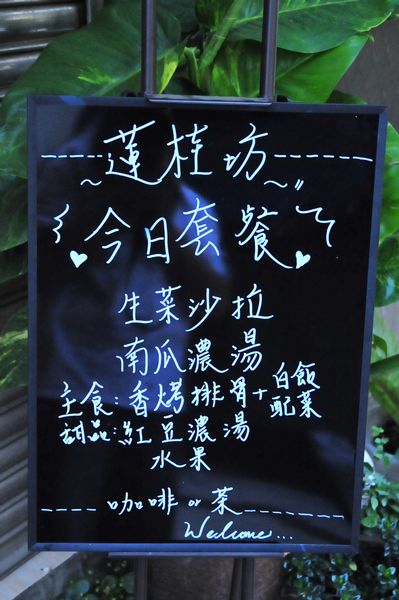 蓮桂坊
今日套餐
生菜沙拉
南瓜濃湯
主食:香烤排骨+白飯配菜
甜品:紅豆濃湯
水果
咖啡 or 茶
Welcome...